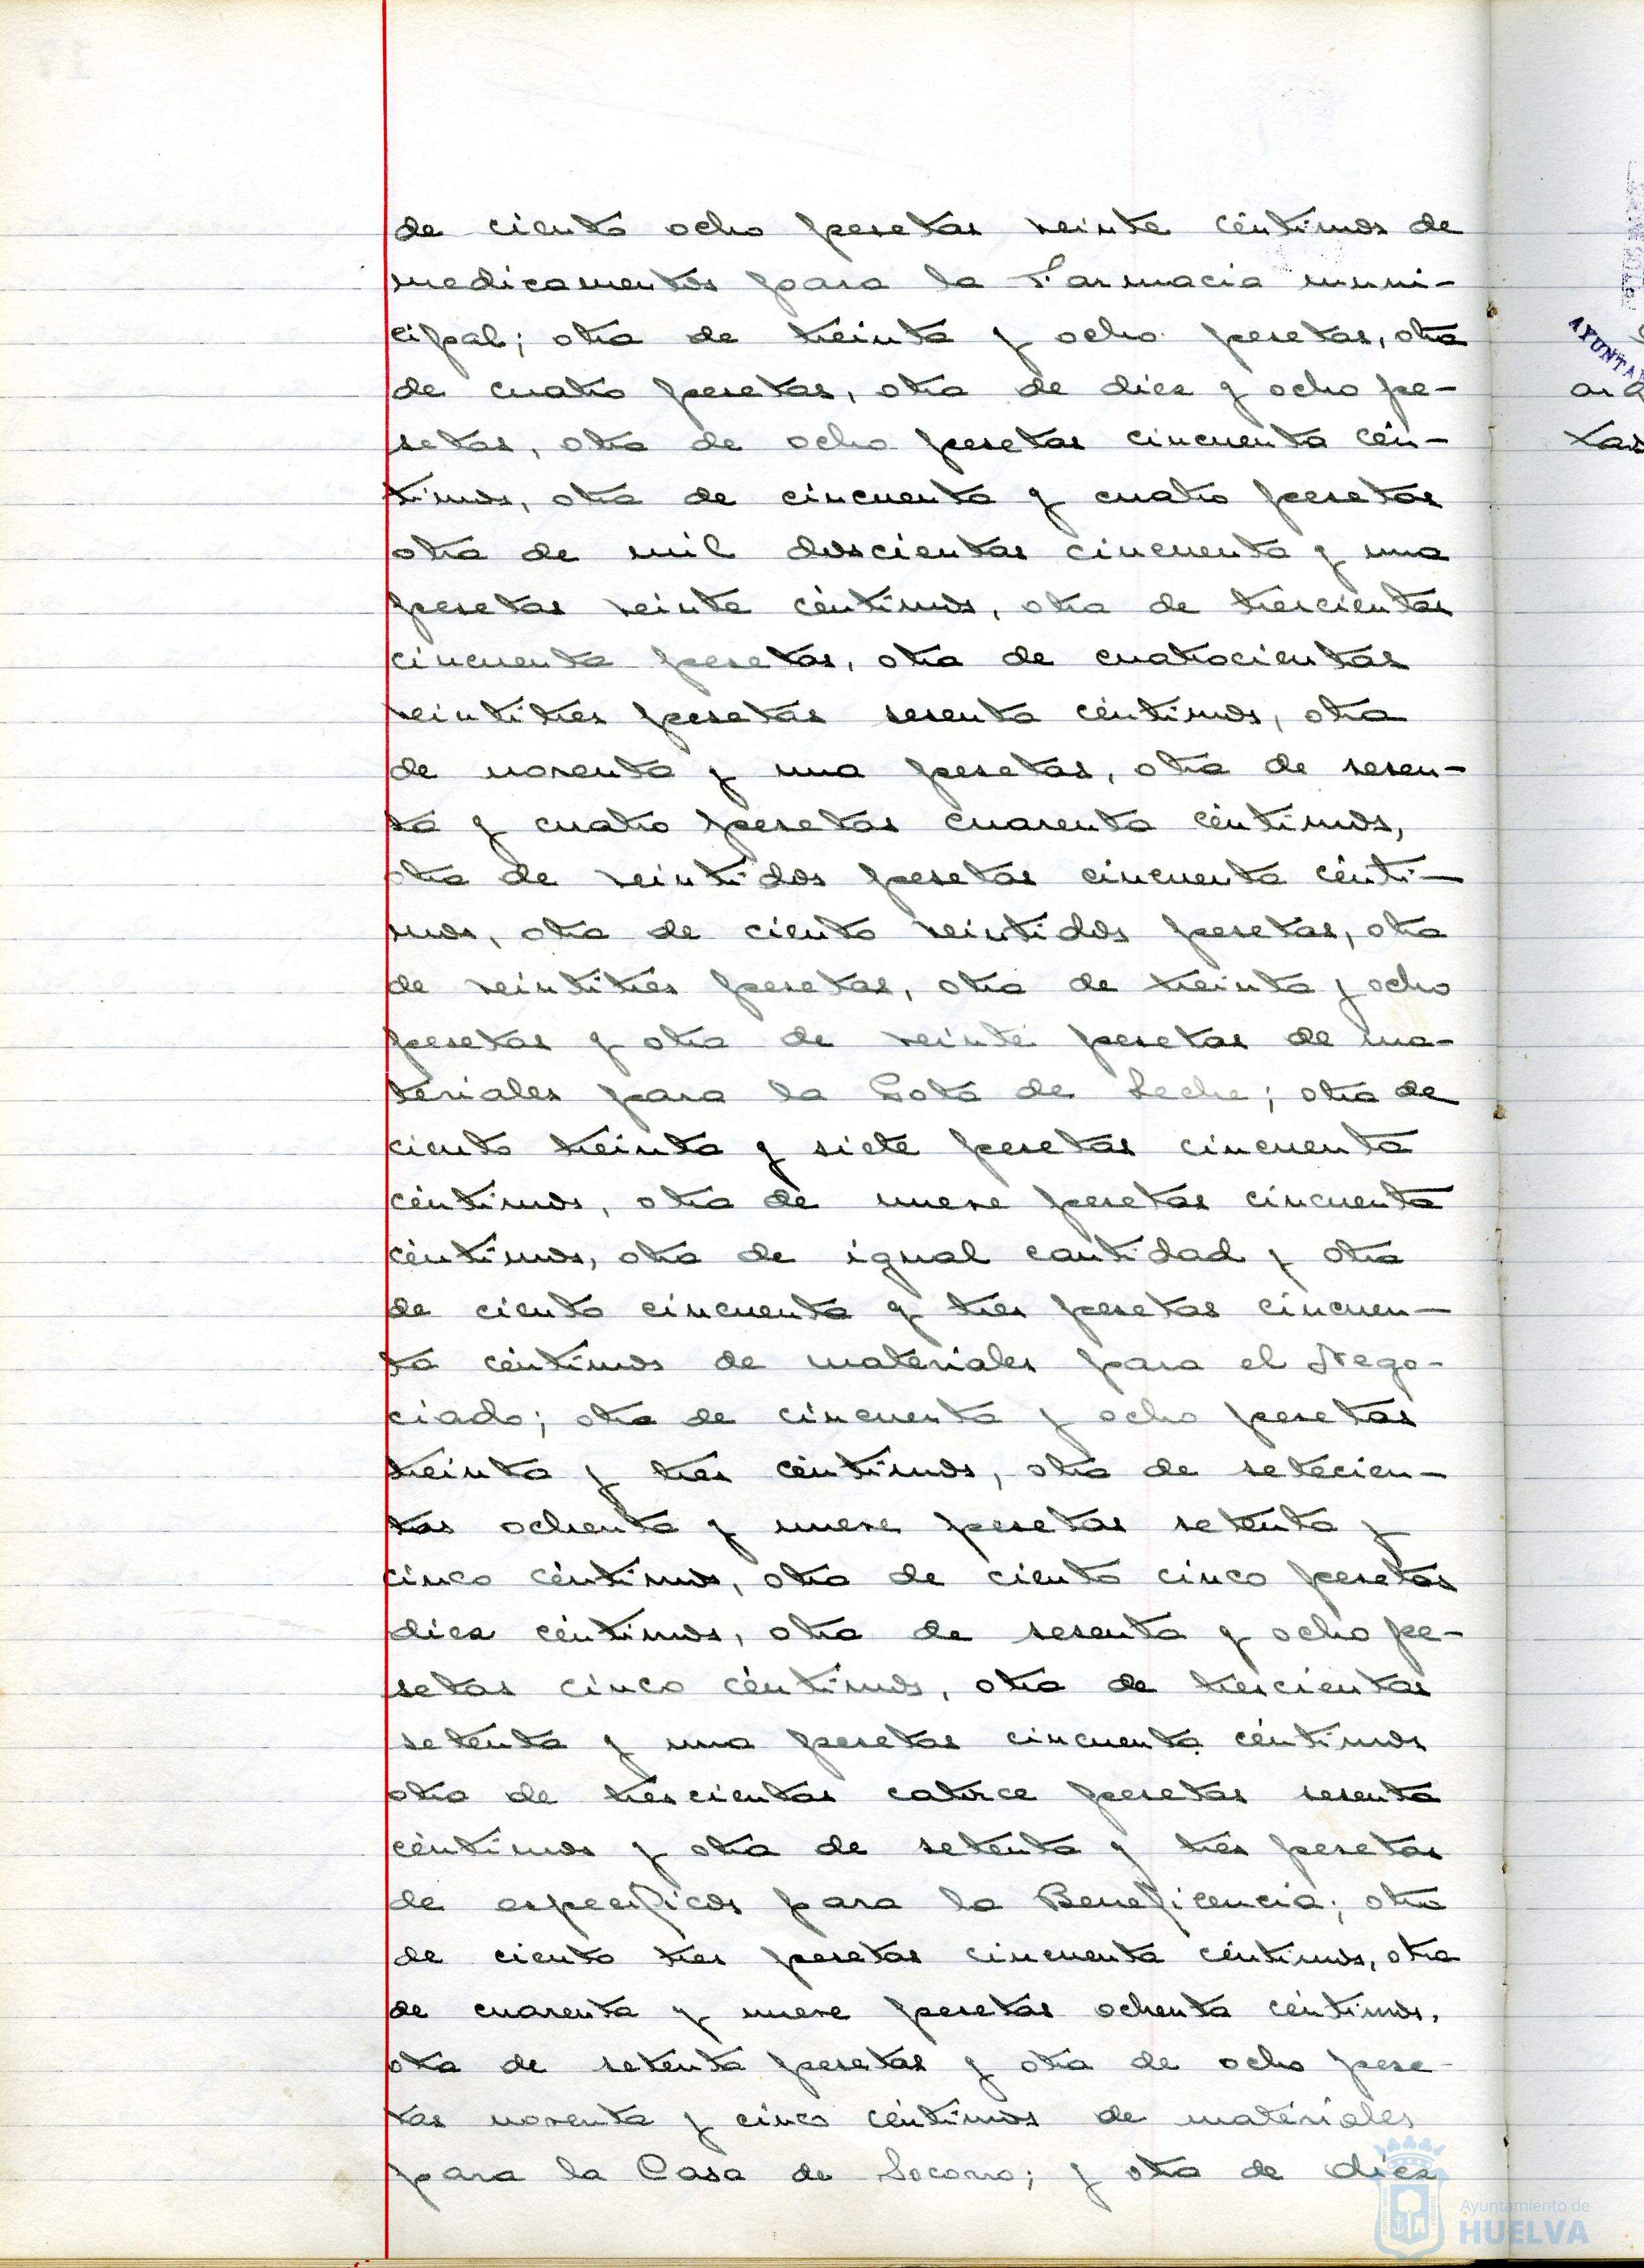 de ciento ocho pesetas veinte céntimos de
medicamentos para la Farmacia muni-
cipal; otra de treinta y ocho pesetas, otra
de cuatro pesetas, otra de diez y ocho pe-
setas, otra de ocho pesetas cincuenta cén-
timos, otra de cincuenta y cuatro pesetas
otra de mil doscientas cincuenta y una
pesetas veinte céntimos, otra de trescientas
cincuenta pesetas, otra de cuatrocientas
veintitres pesetas sesenta céntimos, otra
de noventa y una pesetas, otra de sesen-
ta y cuatro pesetas cuarenta céntimos,
otra de veintidos pesetas cincuenta cénti-
mos, otra de ciento veintidos pesetas, otra
de veintitres pesetas, otra de treinta y ocho
pesetas y otra de veinte pesetas de ma-
teriales para la Gota de Leche; otra de
ciento treinta y siete pesetas cincuenta
céntimos, otra de nueve pesetas cincuenta
céntimos, otra de igual cantidad y otra
de ciento cincuenta y tres pesetas cincuen-
ta céntimos de materiales para el Nego-
ciado; otra de cincuenta y ocho pesetas
treinta y tres céntimos, otra de setecien-
tas ochenta y nueve pesetas setenta y
cinco céntimos, otra de ciento cinco pesetas
diez céntimos, otra de sesenta y ocho pe-
setas cinco céntimos, otra de trescientas
setenta y una pesetas cincuenta céntimos
otra de trescientas catorce pesetas sesenta
céntimos y otra de setenta y tres pesetas
de especificos para la Beneficencia; otra
de ciento tres pesetas cincuenta céntimos, otra
de cuarenta y nueve pesetas ochenta céntimos,
otra de setenta pesetas y otra de ocho pese-
tas noventa y cinco céntimos de materiales
para la Casa de Socorro; y otra de diez
AYUNTA
tas
Ayuntamiento de
HUELVA